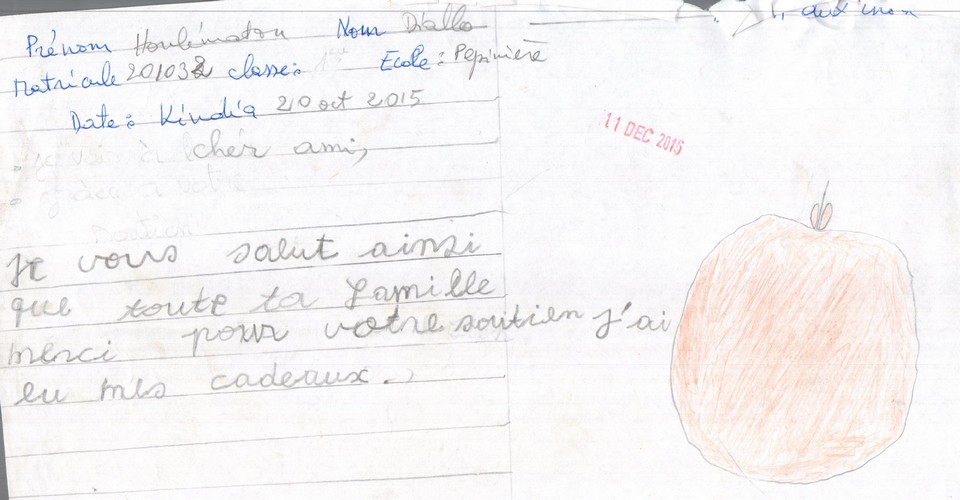 Prénom Houlématou Nom Diallo
Matricule 201032 classe: 1ère Ecole: Pépinière
Date: Kindia 20 oct 2015
cher ami,
Je vous salut ainsi
que toute ta famille
merci pour votre soutien j'ai
eu mes cadeaux.
11 DEC 2015